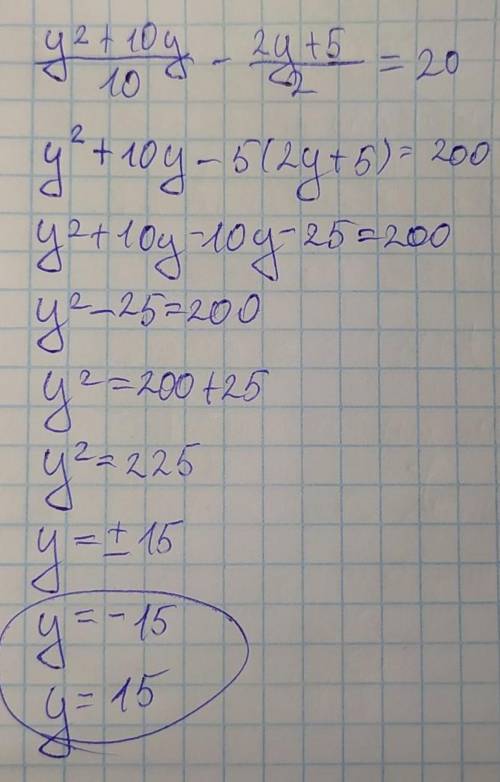 (y² + 10y)/10 - (2y + 5)/2 = 20
y² + 10y - 5(2y + 5) = 200
y² + 10y - 10y - 25 = 200
y² - 25 = 200
y² = 200 + 25
y² = 225
y = ± 15
y = -15
y = 15